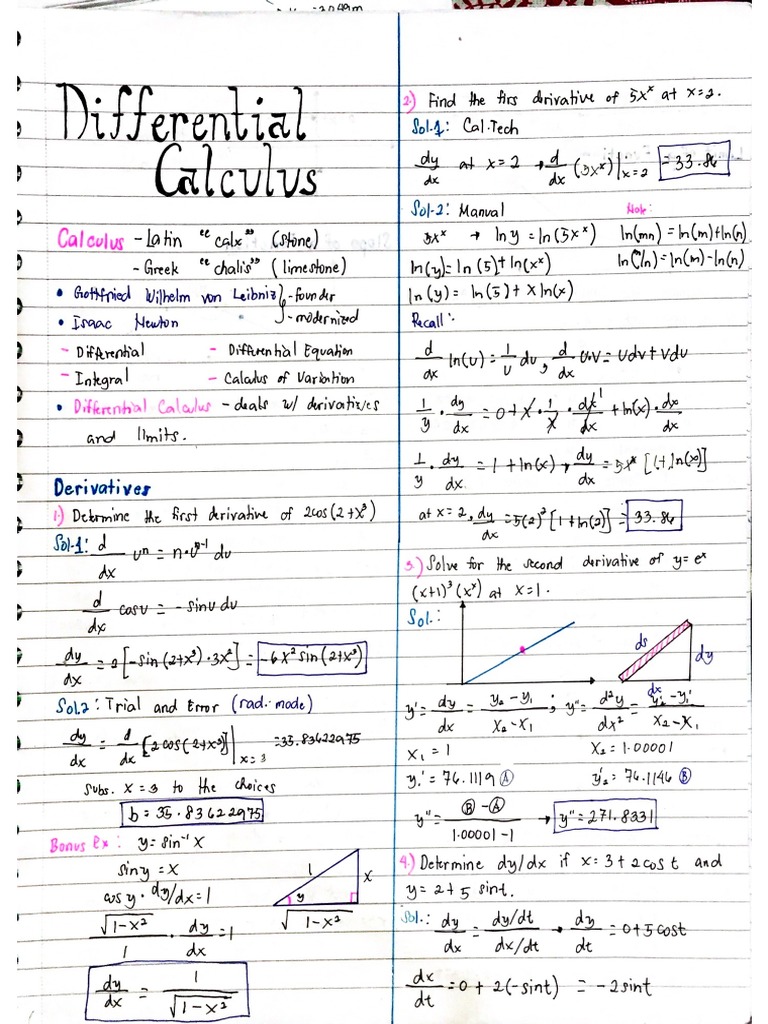 Differential
Calculus
Calculus - Latin "calx" (stone)
- Greek "chalis" (limestone)
• Gottfried Wilhelm von Leibniz } -founder
• Isaac Newton -modernized
- Differential - Differential Equation
- Integral - Calculus of Variation
• Differential Calculus - deals w/ derivatives
and limits.
Derivatives
1.) Determine the first derivative of 2cos(2+x³)
Sol.1: d/dx uⁿ = n·uⁿ⁻¹ du
d/dx cosu = -sinu du
dy/dx = 2[-sin(2+x³)·3x²] = -6x²sin(2+x³)
Sol.2: Trial and Error (rad. mode)
dy/dx = d/dx [2cos(2+x³)]|x=3 = 35.83622975
Subs. x=3 to the choices
b = 35.83622975
Bonus Ex: y = sin⁻¹ x
siny = x
cosy · dy/dx = 1
√1-x²/1 · dy/dx = 1
dy/dx = 1/√1-x²
1
x
y
√1-x²
2.) Find the firs derivative of 5xˣ at x=2.
Sol.1: Cal.Tech
dy/dx at x=2 → d/dx (5xˣ)|x=2 = 33.86
Sol.2: Manual Note:
5xˣ → ln y = ln(5xˣ) ln(mn) = ln(m)+ln(n)
ln(y) = ln(5)+ln(xˣ) ln(m/n) = ln(m)-ln(n)
ln(y) = ln(5)+xln(x)
Recall:
d/dx ln(u) = 1/u du, d/dx u·v = udv+vdu
1/y · dy/dx = 0+x·1/x·dx/dx¹ + ln(x)·dx/dx
1/y · dy/dx = 1+ln(x) → dy/dx = 5xˣ [1+ln(x)]
at x=2, dy/dx = 5(2)²[1+ln(2)] = 33.86
3.) Solve for the second derivative of y=eˣ
(x+1)³(xˣ) at x=1.
Sol.:
ds
dy
dx
y' = dy/dx = y₂-y₁/x₂-x₁; y'' = d²y/dx² = y₂'-y₁'/x₂-x₁
x₁ = 1 x₂ = 1.00001
y₁' = 76.1119 Ⓐ y₂' = 76.1146 Ⓑ
y'' = Ⓑ-Ⓐ/1.00001-1 → y'' = 271.8331
4.) Determine dy/dx if x=3+2cost and
y=2+5 sint.
Sol.: dy/dx = dy/dt/dx/dt → dy/dt = 0+5cost
dx/dt = 0+2(-sint) = -2sint